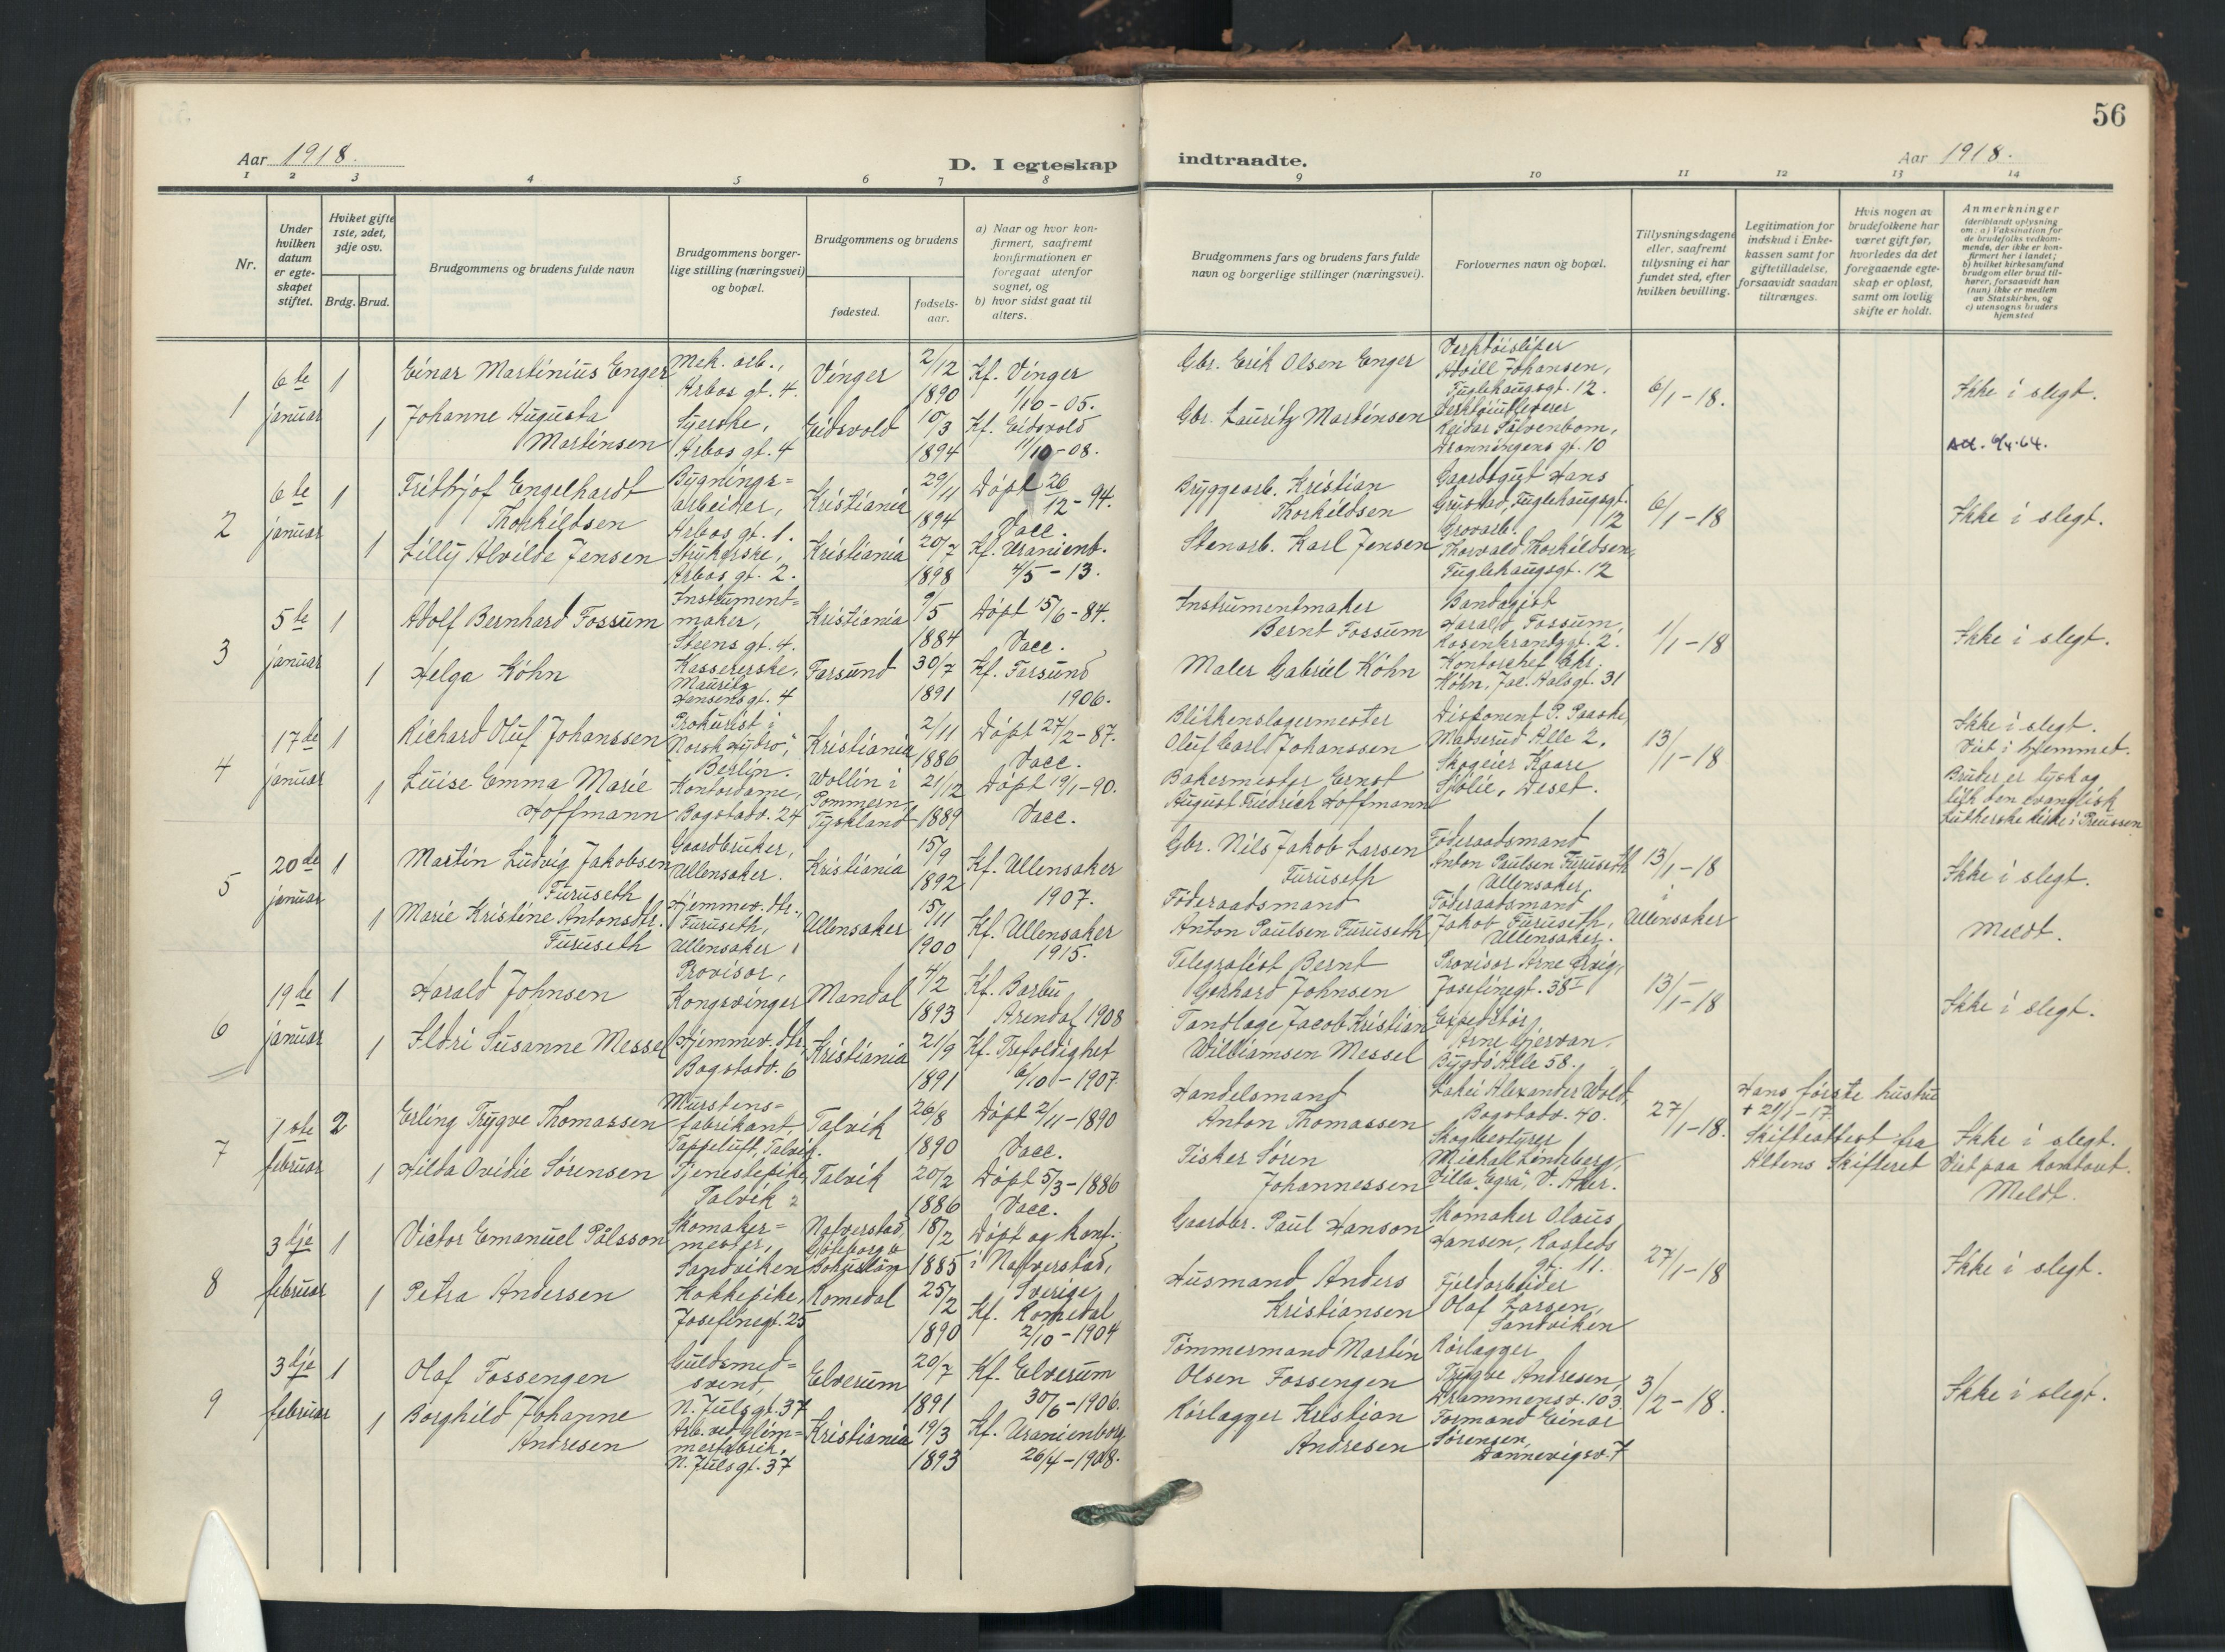 56
Aar 1918.
D. I egteskap
indtraadte.
Aar 1918.
1 2 3 4 5 6 7 8 9 10 11 12 13 14
Nr.
Under hvilken datum er egteskapet stiftet.
Hvilket gifte 1ste, 2det, 3dje osv.
Brdg. Brud.
Brudgommens og brudens fulde navn
Brudgommens borgerlige stilling (næringsvei) og bopæl.
Brudgommens og brudens
fødested.
fødselsaar.
a) Naar og hvor konfirmert, saafremt konfirmationen er foregaat utenfor sognet, og
b) hvor sidst gaat til alters.
Brudgommens fars og brudens fars fulde navn og borgerlige stillinger (næringsvei).
Forlovernes navn og bopæl.
Tillysningsdagene eller, saafremt tillysning ei har fundet sted, efter hvilken bevilling.
Legitimation for indskud i Enkekassen samt for giftetilladelse, forsaavidt saadan tiltrænges.
Hvis nogen av brudefolkene har været gift før, hvorledes da det foregaaende egteskap er opløst, samt om lovlig skifte er holdt.
Anmerkninger
(deriblandt oplysning om: a) Vaksination for de brudefolks vedkommende, der ikke er konfirmert her i landet; b) hvilket kirkesamfund brudgom eller brud tilhører, forsaavidt han (hun) ikke er medlem av Statskirken, og c) utensogns bruders hjemsted
1
6te januar
1
Einar Martinius Enger
Mek. arb., Arbos gt. 4.
Vinger
2/12 1890
Kf. Vinger 1/10-05.
Gbr. Erik Olsen Enger
Verktøisliper Arvill Johansen, Fuglehaugsgt. 12.
6/1-18.
Ikke i slegt.
1
Johanne Augusta Martinsen
Syerske, Arbos gt. 4
Eidsvold
10/3 1894
Kf. Eidsvold 11/10-08.
Gbr. Lauritz Martinsen
Verktøiutleverer Reidar Sølvenbom, Dronningens gt. 10
Att. 6/4-64.
2
6te januar
1
Fridtjof Engelhardt Thorkildsen
Bygningsarbeider, Arbos gt. 1.
Kristiania
29/11 1894
Døpt 26/12-94. Vacc.
Bryggearb. Kristian Thorkildsen
Gaardsgut Hans Grustad, Fuglehaugsgt. 12
6/1-18
Ikke i slegt.
1
Lilly Alvilde Jensen
Strykerske, Arbos gt. 2.
Kristiania
20/7 1898
Kf. Uranienb. 4/5-13.
Stenarb. Karl Jensen
Grovarb. Thorvald Thorkildsen, Fuglehaugsgt. 12
3
5te januar
1
Adolf Bernhard Fossum
Instrumentmaker, Steens gt. 4.
Kristiania
9/5 1884
Døpt 15/6-84. Vacc.
Instrumentmaker Bernt Fossum
Bandagist Harald Fossum, Rosenkrantzgt. 2.
1/1-18
Ikke i slegt.
1
Helga Køhn
Kassererske, Mauritz Hansens gt. 4
Farsund
30/7 1891
Kf. Farsund 1906.
Maler Gabriel Køhn
Kontorchef Chr. Køhn, Jac. Aalsgt. 31
4
17de januar
1
Richard Oluf Johanssen
Prokurist i "Norsk Hydro", Berlin.
Kristiania
2/11 1886
Døpt 27/2-87. Vacc.
Blikkenslagermester Oluf Carl Johanssen
Disponent P. Paaske, Madserud Alle 2.
13/1-18
Ikke i slegt. Viet i hjemmet.
1
Luise Emma Marie Hoffmann
Kontordame, Bogstadv. 24
Wollin i Pommern, Tyskland
21/12 1889
Døpt 19/1-90. Vacc.
Bakermester Ernst August Friedrich Hoffmann
Skogeier Kaare Sjølie, Deset.
Bruden er tysk og tilh. den evanglisk Lutherske kirke i Preussen
5
20de januar
1
Martin Ludvig Jakobsen Furuseth
Gaardbruker, Ullensaker.
Kristiania
15/9 1892
Kf. Ullensaker 1907.
Gbr. Nils Jakob Larsen Furuseth
Føderaadsmand Anton Paulsen Furuseth Ullensaker.
13/1-18 i Ullensaker
Ikke i slegt.
1
Marie Kristine Antonsdtr. Furuseth
Hjemmev. dtr., Furuseth, Ullensaker
Ullensaker
15/11 1900
Kf. Ullensaker 1915.
Føderaadsmand Anton Paulsen Furuseth
Føderaadsmand Jakob Furuseth, Ullensaker.
Meldt.
6
19de januar
1
Harald Johnsen
Provisor, Kongsvinger
Mandal
4/2 1893
Kf. Barbu, Arendal 1908
Telegrafist Bernt Gerhard Johnsen
Provisor Arne Ervig, Josefinegt. 38 I
13/1-18
Ikke i slegt.
1
Ildri Susanne Messel
Hjemmev. dtr. Bogstadv. 6
Kristiania
21/9 1891
Kf. Trefoldighet 6/10-1907.
Tandlæge Jacob Kristian Williamsen Messel
Expeditør, Arne Gjervan, Bygdø Alle 58.
7
1ste februar
2
Erling Trygve Thomassen
Murstensfabrikant, Tappeluft, Talvik.
Talvik
26/8 1890
Døpt 2/11-1890 Vacc.
Handelsmand Anton Thomassen
Lakei Alexander Wold, Bogstadv. 40.
27/1-18.
Hans første hustru + 21/1-17. Skifteattest fra Altens Skifteret
Ikke i slegt. Viet paa kontoret. Meldt.
1
Hilda Ovidie Sørensen
Tjenestepike, Talvik
Talvik
20/2 1886
Døpt 5/3-1886 Vacc.
Fisker Søren Johannessen
Skogbestyrer Michall Lindeberg, Villa "Egra", V. Aker.
8
3dje februar
1
Victor Emanuel Pålsson
Skomakermester, Sandviken
Naverstad, Gøteborg o Bohuslän
18/2 1885
Døpt og konf. i Naverstad, Sverige
Gaardbr. Paul Hanson
Skomaker Olaus Hansen, Rosteds gt. 11.
27/1-18
Ikke i slegt.
1
Petra Andersen
Kokkepike, Josefinegt. 25
Romedal
25/2 1890
Kf. Romedal 2/10-1904
Husmand Anders Kristiansen
Fjeldarbeider Olaf Larsen, Sandviken
9
3dje februar
1
Olaf Fossengen
Guldsmedsvend, N. Julsgt. 37
Elverum
20/7 1891
Kf. Elverum 30/6-1906.
Tømmermand Martin Olsen Fossengen
Rørlægger Trygve Andresen, Drammensv. 103.
3/2-18.
Ikke i slegt.
1
Borghild Johanne Andresen
Arb. ved Glimmerfabrik, N. Julsgt. 37
Kristiania
19/3 1893
Kf. Uranienborg 26/4-1908.
Rørlægger Kristian Andresen
Formand Einar Sørensen, Dannevigsv. 7